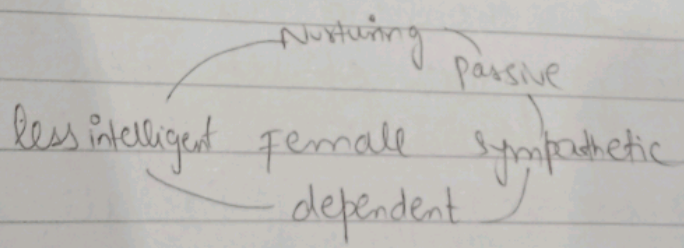 Nurturing
passive
less intelligent Female sympathetic
dependent